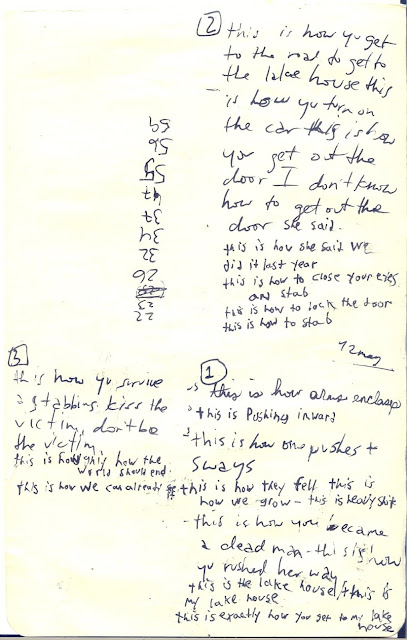 2
this is how yu get
to the road to get to
the lake house this
is how yu turn on
the car this is how
you get out the
door I don't know
how to get out the
door she said.
this is how she said we
did it last year
this is how to close your eyes
and stab
this is how to lock the door
this is how to stab
12 may
22
23
26
32
34
37
47
56
59
3
this how yu survive
a stabbing kiss the
victim, don't be
the victim
this is how the
world should end.
this is how we can already
1
this is how arms enclasp
this is pushing inward
this is how one pushes +
sways
this is how they fell this is
how we grow – this is heavy shit
this is how you became
a dead man – this is how
yu rushed her way
this is the lake house / this is
my lake house
this is exactly how you get to my lake
house